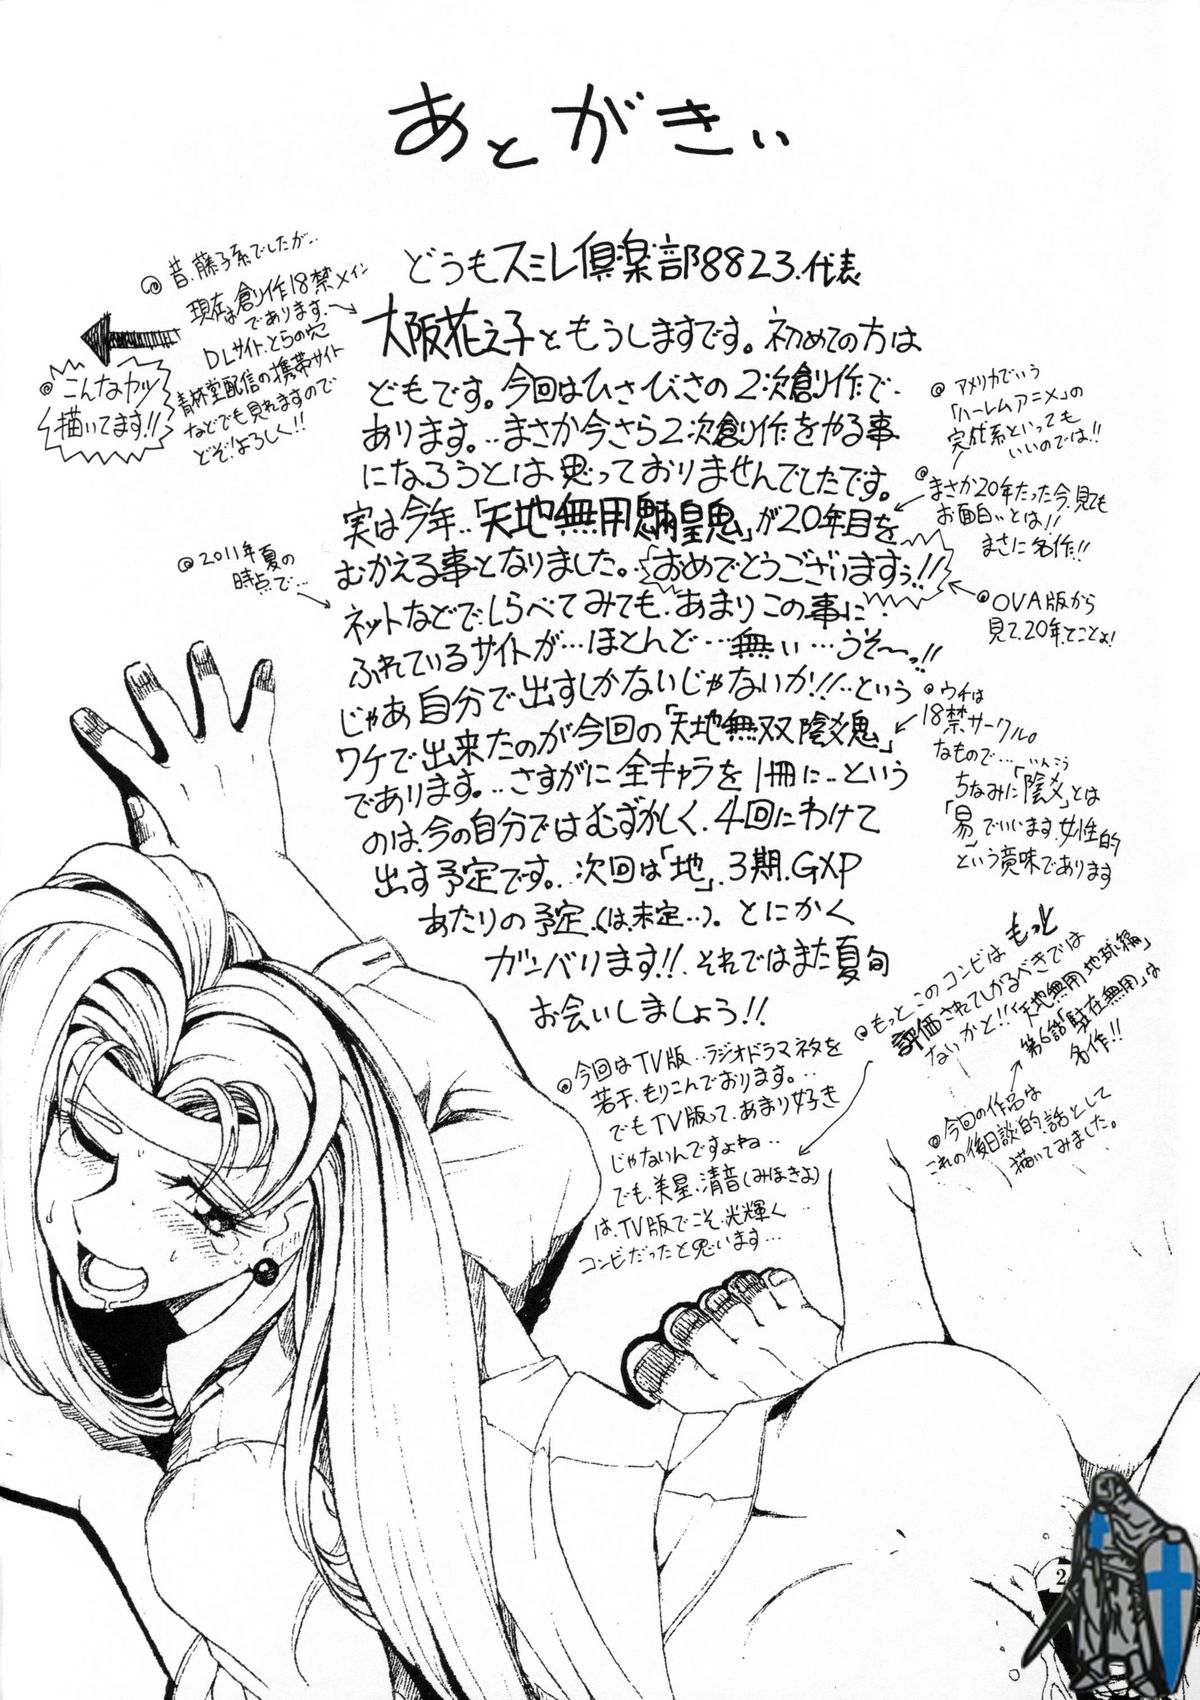 あとがきぃ
どうもスミレ倶楽部8823.代表
大阪花之子ともうしますです。初めての方は
どもです。今回はひさびさの2次創作で
あります。‥まさか今さら2次創作をやる事
になろうとは思っておりませんでしたです。
実は今年‥「天地無用魎皇鬼」が20年目を
むかえる事となりました。「おめでとうございますぅ!!
ネットなどでしらべてみても、あまりこの事に
ふれているサイトが…ほとんど…無ぃ…うそ〜っ!!
じゃあ自分で出すしかないじゃないか!!‥という
ワケで出来たのが今回の「天地無双陰爻鬼」
であります。‥さすがに全キャラを1冊に‥という
のは、今の自分ではむずかしく、4回にわけて
出す予定です。‥次回は「地」、3期、GXP
あたりの予定、(は、未定‥)。とにかく
ガンバります!!、それではまた夏旬
お会いしましょう!!
◎昔、藤子系でしたが‥
現在は創作18禁メイン
であります、→
DLサイト、とらの穴
青林堂配信の携帯サイト
などでも見れますので
どぞ!よろしく!!
◎こんなカンジ
描いてます!!
◎2011年夏の
時点で…
◎アメリカでいう
「ハーレムアニメ」の
完成系といっても
いいのでは!!
◎まさか20年たった今、見ても
お面白いとは!!
まさに名作!!
◎OVA版から
見て、20年てことよ!
◎ウチは
18禁サークル。
なもので…
いんこう
ちなみに「陰爻」とは
「易」でいいます、女性的
という意味であります
◎もっとこのコンビは もっと
評価されてしかるべきでは
ないかと!!「天地無用地球編」
第6話「駐在無用」は
名作!!
◎今回の作品は
これの後日談的話として
描いてみました。
◎今回はTV版‥ラジオドラマネタを
若干、もりこんでおります。‥
でもTV版って、あまり好き
じゃないんですよね‥
でも、美星、清音(みほきよ)
は、TV版でこそ、光輝く
コンビだったと思います…
2